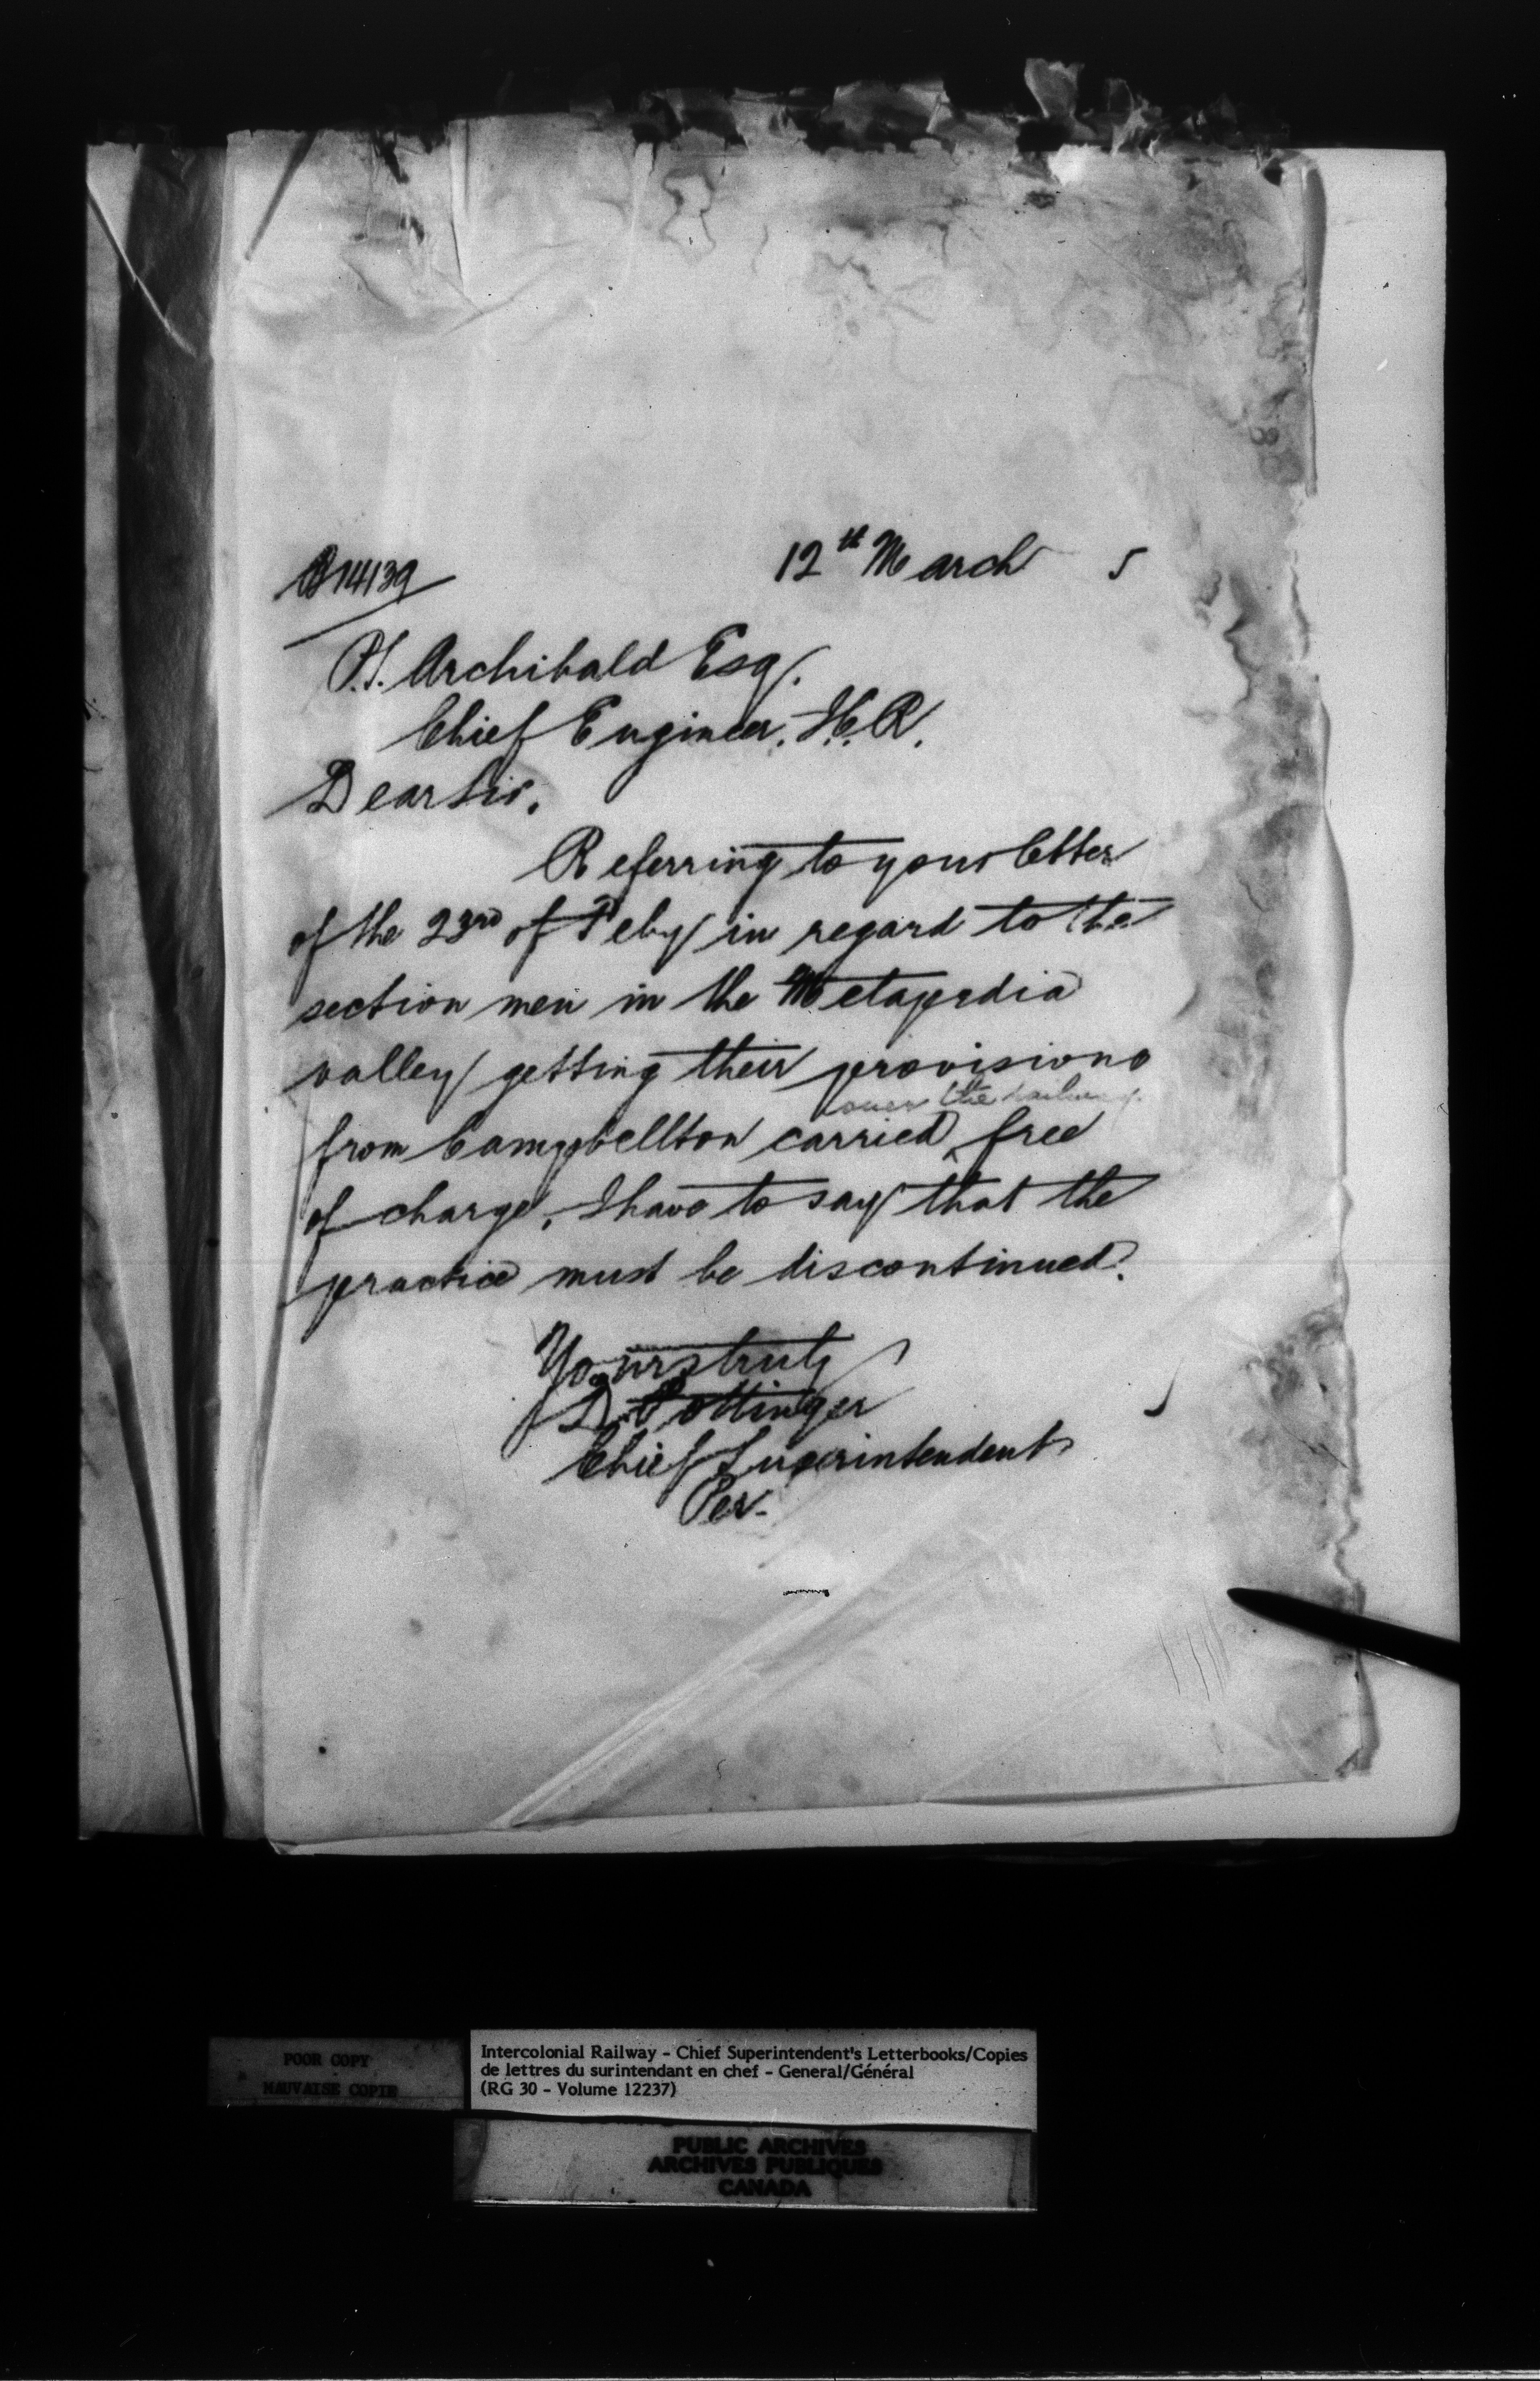 12th March 5
14139
P.S. Archibald Esq.
Chief Engineer. I.C.R.
Dear Sir.
Referring to your letter
of the 23rd of Feby in regard to the
section men in the Metapedia
valley getting their provisions
over the railway
from Campbellton carried ^ free
of charge, I have to say that the
practice must be discontinued.
Yours truly
D. Pottinger
Chief Superintendent
Per.
POOR COPY
MAUVAISE COPIE
Intercolonial Railway - Chief Superintendent's Letterbooks/Copies
de lettres du surintendant en chef - General/Général
(RG 30 - Volume 12237)
PUBLIC ARCHIVES
ARCHIVES PUBLIQUES
CANADA